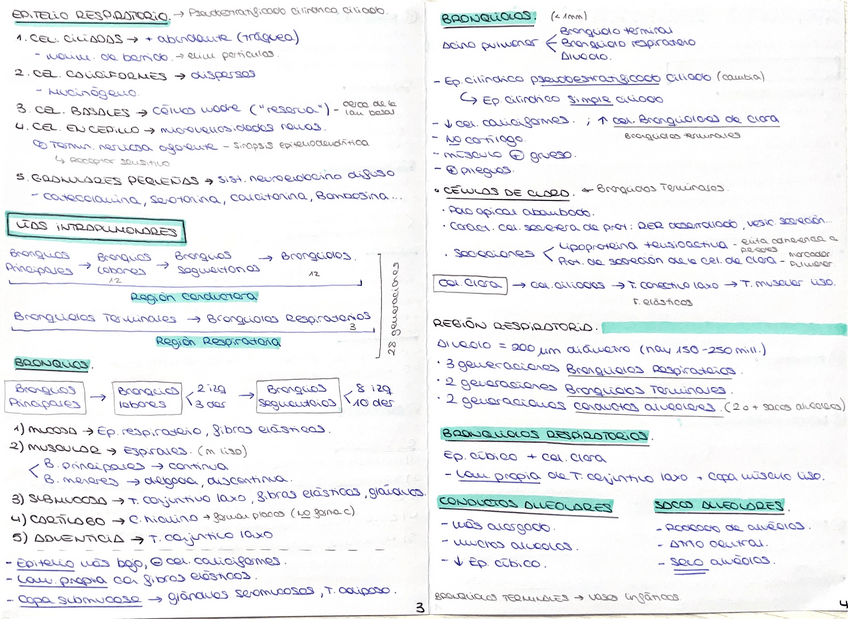 EPITELIO RESPIRATORIO. → Pseudoestratificado cilíndrico ciliado.
1. CEL. CILIADAS → + abundante (tráquea)
- movim. de barrido → elim partículas.
2. CEL. CALICIFORMES → dispersas
- Mucinógeno.
3. CEL. BASALES → células madre ("reserva") - cerca de la lam basal
4. CEL. EN CEPILLO → microvellosidades romas.
Termin. nerviosa aferente - Sinapsis epiteliodendrítica
↳ Receptor sensitivo
5. GRANULARES PEQUEÑAS → Sist. neuroendocrino difuso
- catecolamina, serotonina, calcitonina, Bombosina...
VÍAS INTRAPULMONARES
Bronquios Principales → Bronquios Lobares → Bronquios Segmentarios → Bronquiolos.
12
12
Región Conductora
Bronquiolos Terminales → Bronquiolos Respiratorios
3
Región Respiratoria
28 generaciones
BRONQUIOS.
Bronquios Principales → Bronquios lobares < 2 izq 3 der → Bronquios Segmentarios < 8 izq 10 der
1) MUCOSA → Ep. respiratorio, fibras elásticas.
2) MUSCULAR → Espirales. (m liso)
B. principales → continua
B. menores → delgada, discontinua.
3) SUBMUCOSA → T. conjuntivo laxo, fibras elásticas, glándulas.
4) CARTÍLAGO → C. hialino → forman placas (No forma c)
5) ADVENTICIA → T. conjuntivo laxo
- Epitelio más bajo, ⊖ cel. caliciformes.
- Lam. propia con fibras elásticas.
- Capa submucosa → glándulas seromucosas, T. adiposo.
3
BRONQUIOLOS. (<1mm)
Acino pulmonar < Bronquiolo terminal
Bronquiolo respiratorio
Alveolo.
- Ep. cilíndrico pseudoestratificado ciliado (cambia)
↳ Ep cilíndrico simple ciliado
- ↓ cel. caliciformes. ; ↑ cel. Bronquiolares de Clara
Bronquiolos terminales
- No cartílago.
- músculo ⊕ grueso.
- ⊕ pliegues.
• CÉLULAS DE CLARA. ← Bronquiolos Terminales.
· Polo apical abombado.
· Caract. cel. secretora de prot: RER desarrollado, vesic. secreción...
· Secreciones < Lipoproteína tensioactiva - evita adherencia a paredes
Prot. de secreción de la cel. de Clara - marcador pulmonar
Cel Clara → cel. ciliadas → T. conectivo laxo → T. muscular liso.
F. elásticas
REGIÓN RESPIRATORIA.
Alveolo = 200 µm diámetro (hay 150-250 mill.)
· 3 generaciones Bronquiolos Respiratorios.
· 2 generaciones Bronquiolos Terminales.
· 2 generaciones conductos alveolares. (2 o + sacos alveolares)
BRONQUIOLOS RESPIRATORIOS.
Ep. cúbico + cel. Clara
- Lam propia de T. conjuntivo laxo + Capa músculo liso.
CONDUCTOS ALVEOLARES
- más alargado.
- muchos alveolos.
- ↓ Ep. cúbico.
SACOS ALVEOLARES.
- Rodeado de alveolos.
- Atrio central.
- Solo alveolos.
BRONQUIOLOS TERMINALES → vasos linfáticos.
4